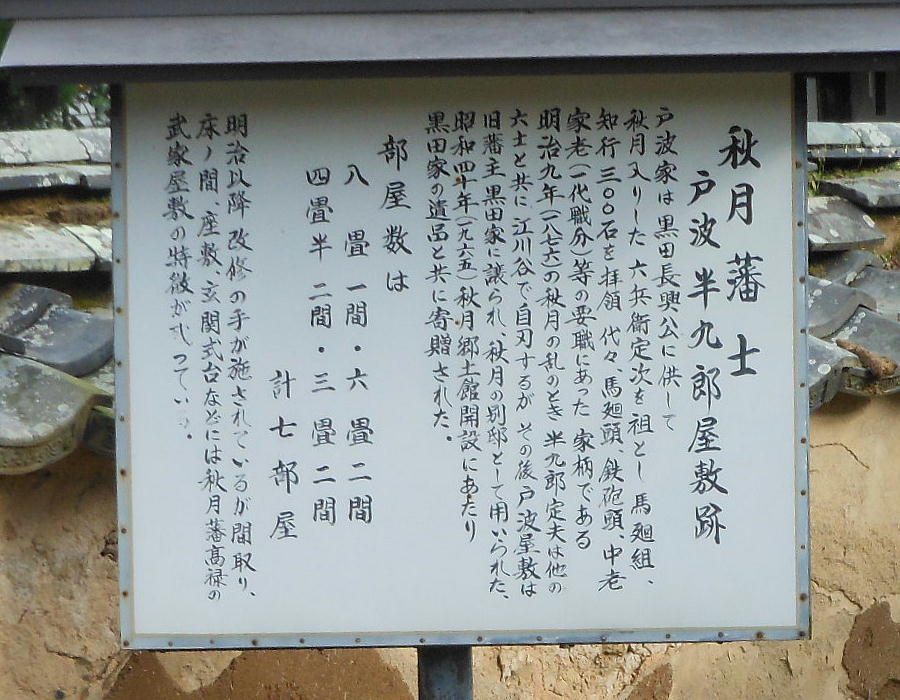 秋月藩士
戸波半九郎屋敷跡
戸波家は黒田長興公に供して
秋月入りした六兵衛定次を祖とし馬廻組、
知行三〇〇石を拝領代々、馬廻頭、鉄砲頭、中老
家老(一代職分)等の要職にあった家柄である
明治九年(一八七六)の秋月の乱のとき半九郎定夫は他の
六士と共に江川谷で自刃するがその後戸波屋敷は
旧藩主黒田家に譲られ、秋月の別邸として用いられた、
昭和四十年(一九六五)秋月郷土館開設にあたり
黒田家の遺品と共に寄贈された.
部屋数は
八畳一間・六畳二間
四畳半二間・三畳二間
計七部屋
明治以降改修の手が施されているが間取り、
床ノ間、座敷、玄関式台などには秋月藩高禄の
武家屋敷の特徴が